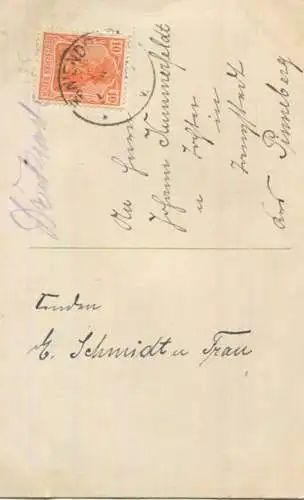 Drucksache
An Herrn
Johann Kummerfeldt
u Tochter
in
Langstedt
Kr Pinneberg
Senden
E. Schmidt u Frau
10
10